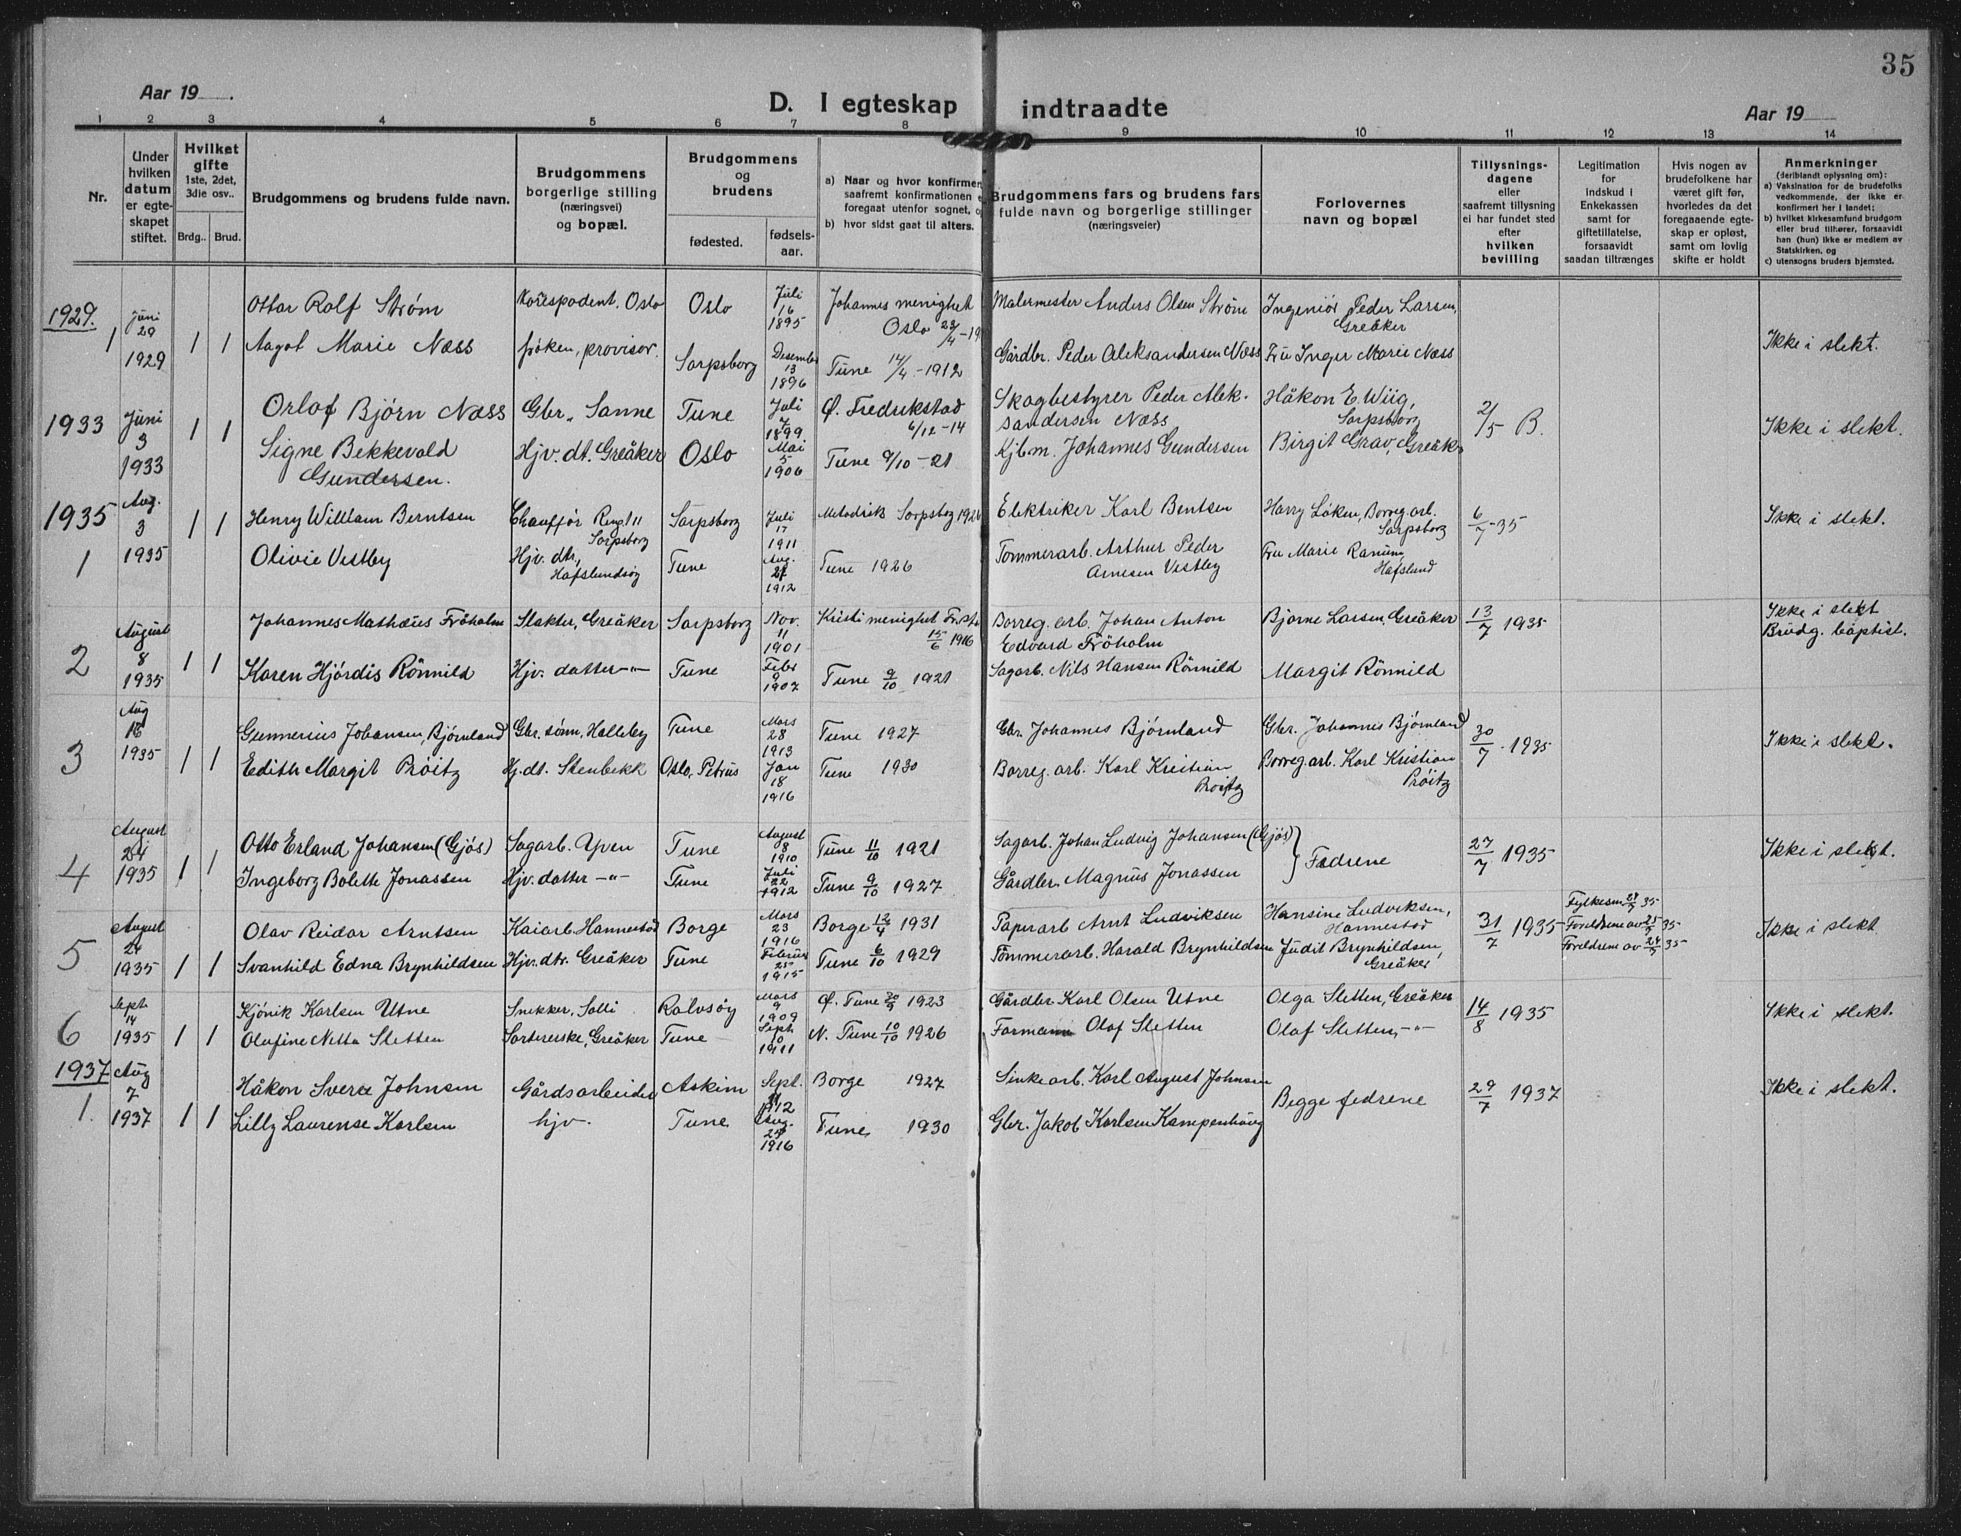 35
Aar 19 .
D. I egteskap indtraadte
Aar 19
1 2 3 4 5 6 7 8 9 10 11 12 13 14
Nr.
Under
hvilken
datum
er egte-
skapet
stiftet.
Hvilket
gifte
1ste, 2det,
3die osv..
Brdg.. Brud.
Brudgommens og brudens fulde navn.
Brudgommens
borgerlige stilling
(næringsvei)
og bopæl.
Brudgommens
og
brudens
fødested.
fødsels-
aar.
a) Naar og hvor konfirmer
saafremt konfirmationen
foregaat utenfor sognet,
b) hvor sidst gaat til alters.
Brudgommens fars og brudens fars
fulde navn og borgerlige stillinger
(næringsveier)
Forlovernes
navn og bopæl
Tillysnings-
dagene
eller
saafremt tillysning
ei har fundet sted
efter
hvilken
bevilling
Legitimation
for
indskud i
Enkekassen
samt for
giftetillatelse,
forsaavidt
saadan tiltrænges
Hvis nogen av
brudefolkene har
været gift før,
hvorledes da det
foregaaende egte-
skap er opløst,
samt om lovlig
skifte er holdt
Anmerkninger
(deriblandt oplysning om):
a) Vaksination for de brudefolks
vedkommende, der ikke er
konfirmert her i landet;
b) hvilket kirkesamfund brudgom
eller brud tilhører, forsaavidt
han (hun) ikke er medlem av
Statskirken, og
c) utensogns bruders hjemsted.
1929. 1 Juni 29 1929 1 1
Ottar Rolf Strøm Korespodent, Oslo Oslo Juli 16 1895 Johannes menighet Oslo Malermester Anders Olsen Strøm Ingeniør Peder Larsen, Greåker
Aagot Marie Næss frøken, provisor. Sarpsborg Desember 13 1896 Tune 14/4-1912 Gårdbr. Peder Aleksandersen Næss Fru Inger Marie Næss Ikke i slekt.
1933 Juni 3 1933 1 1
Orlof Bjørn Næss Gbr. Sanne Tune Juli 7 1899 Ø. Fredrikstad 6/12-14 Skogbestyrer Peder Alek-
sandersen Næss Håkon E. Wiig, Sarpsborg 2/5 B. Ikke i slekt.
Signe Bekkevold
Gundersen. Hjv. dt. Greåker Oslo Mai 5 1906 Tune 9/10-21 Kjbm. Johannes Gundersen Birgit Grav, Greåk.
1935 1 Aug. 3 1935 1 1
Henry William Berntsen Chauffør Ringt 11 Sarpsborg Sarpsborg Juli 17 1911 Metodistk Sarpsbog 1926 Elektriker Karl Bentsen Harry Løken, Borreg. arb. Sarpsborg 6/7-35 Ikke i slekt.
Olivie Vestby Hjv. dtr, Hafslundsøy Tune Aug. 27 1912 Tune 1926 Tømmerarb. Arthur Peder
Arnesen Vestby Fru Marie Ranum, Hafslund
2 August 8 1935 1 1
Johannes Mathæus Frøholm Slakter, Greåker Sarpsborg Nov. 11 1901 Kristi menighet Fr.st. 15/6 1916 Borreg. arb. Johan Anton
Edvard Frøholm Bjarne Larsen, Greåker 13/7 1935 Ikke i slekt
Brudg. baptist.
Karen Hjørdis Rönnild Hjv. datter -"- Tune Febr 9 1907 Tune 9/10 1921 Sagarb. Nils Hansen Rönnild Margit Rönnild
3 Aug 16 1935 1 1
Gunnerius Johansen, Bjørnland Gbr. sønn, Halleby Tune Mars 28 1913 Tune 1927 Gbr. Johannes Bjørnland Gbr. Johannes Bjørnland 30/7-1935 Ikke i slekt.
Edith Margit Prøitz Hj. dt. Stenbekk Oslo, Petrus Jan 18 1916 Tune 1930 Borreg. arb. Karl Kristian Prøitz Borreg. arb. Karl Kristian Prøitz
4 August 24 1935 1 1
Otto Erland Johansen (Gjøs) Sagarb. Yven Tune August 8 1910 Tune 11/10 1921 Sagarb. Johan Ludvig Johansen (Gjøs) } Fedrene 27/7 1935 Ikke i slekt.
Ingeborg Bolette Jonassen Hjv. datter -"- Tune Juli 22 1912 Tune 9/10 1927 Gårdbr. Magnus Jonassen
5 August 24 1935 1 1
Olav Reidar Arntsen Kaiarb. Hannestad Borge Mars 23 1916 Borge 12/4 1931 Papirarb Arnt Ludviksen Hansine Ludviksen, Hannestad 31/7 1935 Fylkesm 27/7 35
Foreldrene av 25/5 35
Foreldrene av 24/5 35 Ikke i slekt
Svanhild Edna Brynhildsen Hjv. dtr. Greåker Tune Februar 25 1915 Tune 6/10 1929 Tømmerarb. Harald Brynhildsen Judit Brynhildsen, Greåker
6 Sept 14 1935 1 1
Kjønik Karlsen Utne Snekker, Solli Rolvsøy Mars 9 1909 Ø. Tune 1923 Gårdbr. Karl Olsen Utne Olga Sletten, Greåker 14/8 1935 Ikke i slekt.
Olafine Netta Sletten Sortererske, Greåker Tune Sept 10 1911 N. Tune 10/10 1926 Formann Olaf Sletten Olaf Sletten, -"-
1937 1. Aug 7 1937 1 1
Håkon Sverre Johnsen Gårdsarbeider Askim Sept. 11 1912 Borge 1927 Sinkearb. Karl August Johnsen Begge fedrene 29/7 1937 Ikke i slekt.
Lilly Laurense Karlsen hjv. Tune Aug. 24 1916 Tune 1930 Gbr. Jakob Karlsen Kampenhaug